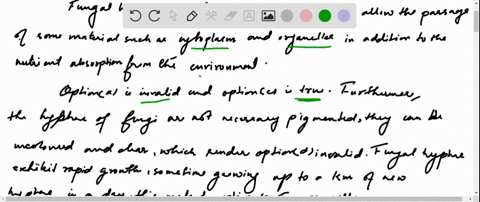 Fungal allow the passage
of some material such as cytoplasm and organelles in addition to the
nutrient absorption from the environment.
Option(a) is invalid and option(c) is true. Furthermore,
the hyphae of fungi are not necessary pigmented, they can be
and clear, which render option(d) invalid. Fungal hyphae
exhibit rapid growth, sometime growing up to a km of new
hyphae in a day, this